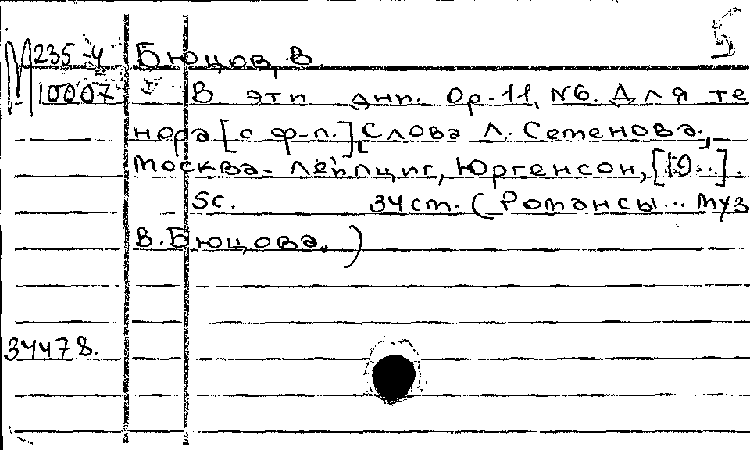 5
M 235-4 Бюцов, В.
10007 I В эти дни. Op.11, N6. Для те
нора [с ф-п.] Слова Л. Семенова.
Москва-Лейпциг, Юргенсон, [19..].
5с. 34 см. (Романсы... муз
В. Бюцова.)
34478.